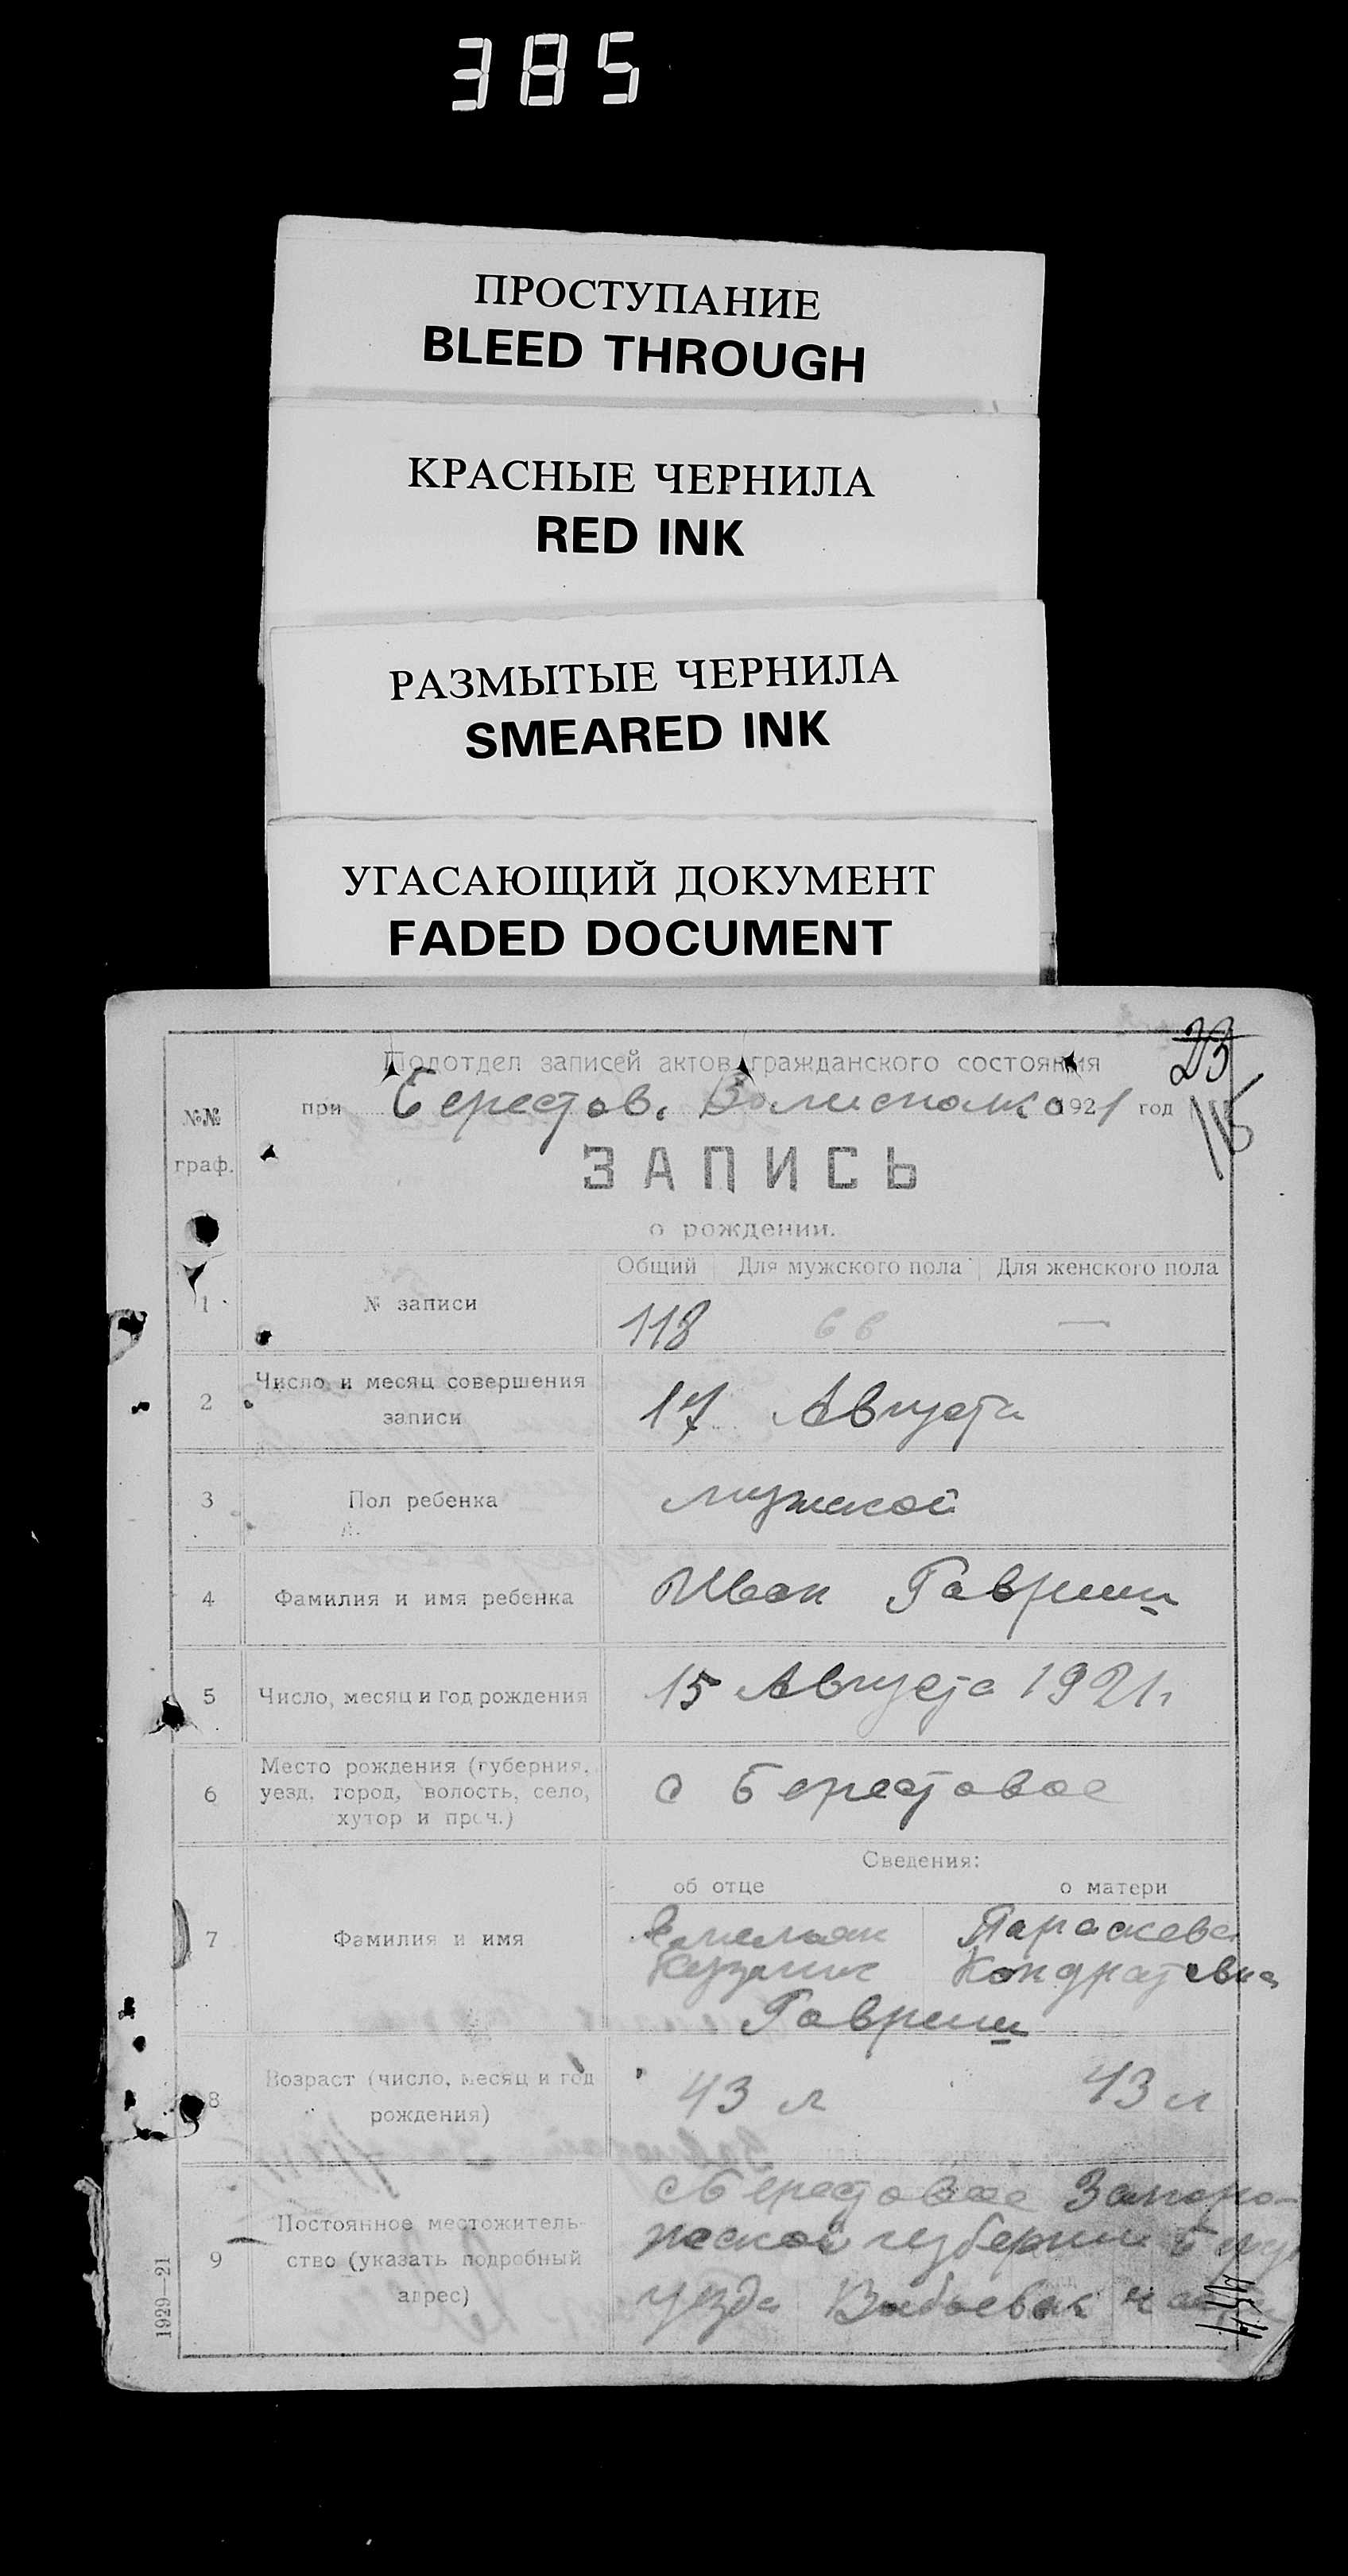 385
ПРОСТУПАНИЕ
BLEED THROUGH
КРАСНЫЕ ЧЕРНИЛА
RED INK
РАЗМЫТЫЕ ЧЕРНИЛА
SMEARED INK
УГАСАЮЩИЙ ДОКУМЕНТ
FADED DOCUMENT
23
Подотдел записей актов гражданского состояния
при Берестов. Волисполко 1921 год
№№
граф.
ЗАПИСЬ
о рождении.
Общий Для мужского пола Для женского пола
1 № записи 118 66 —
2 Число и месяц совершения
записи
17 Августа
3 Пол ребенка мужской
4 Фамилия и имя ребенка Иван Гавриш
5 Число, месяц и год рождения 15 Августа 1921г
6 Место рождения (губерния,
уезд, город, волость, село,
хутор и проч.)
с Берестовое
Сведения:
об отце о матери
7 Фамилия и имя
Емельян Параскева
Кузмич Кондратевна
Гавриш
8 Возраст (число, месяц и год
рождения)
43 л 43 л
9 Постоянное местожитель-
ство (указать подробный
адрес)
с Берестовое Запоро-
жской губернии
уезда
1929—21